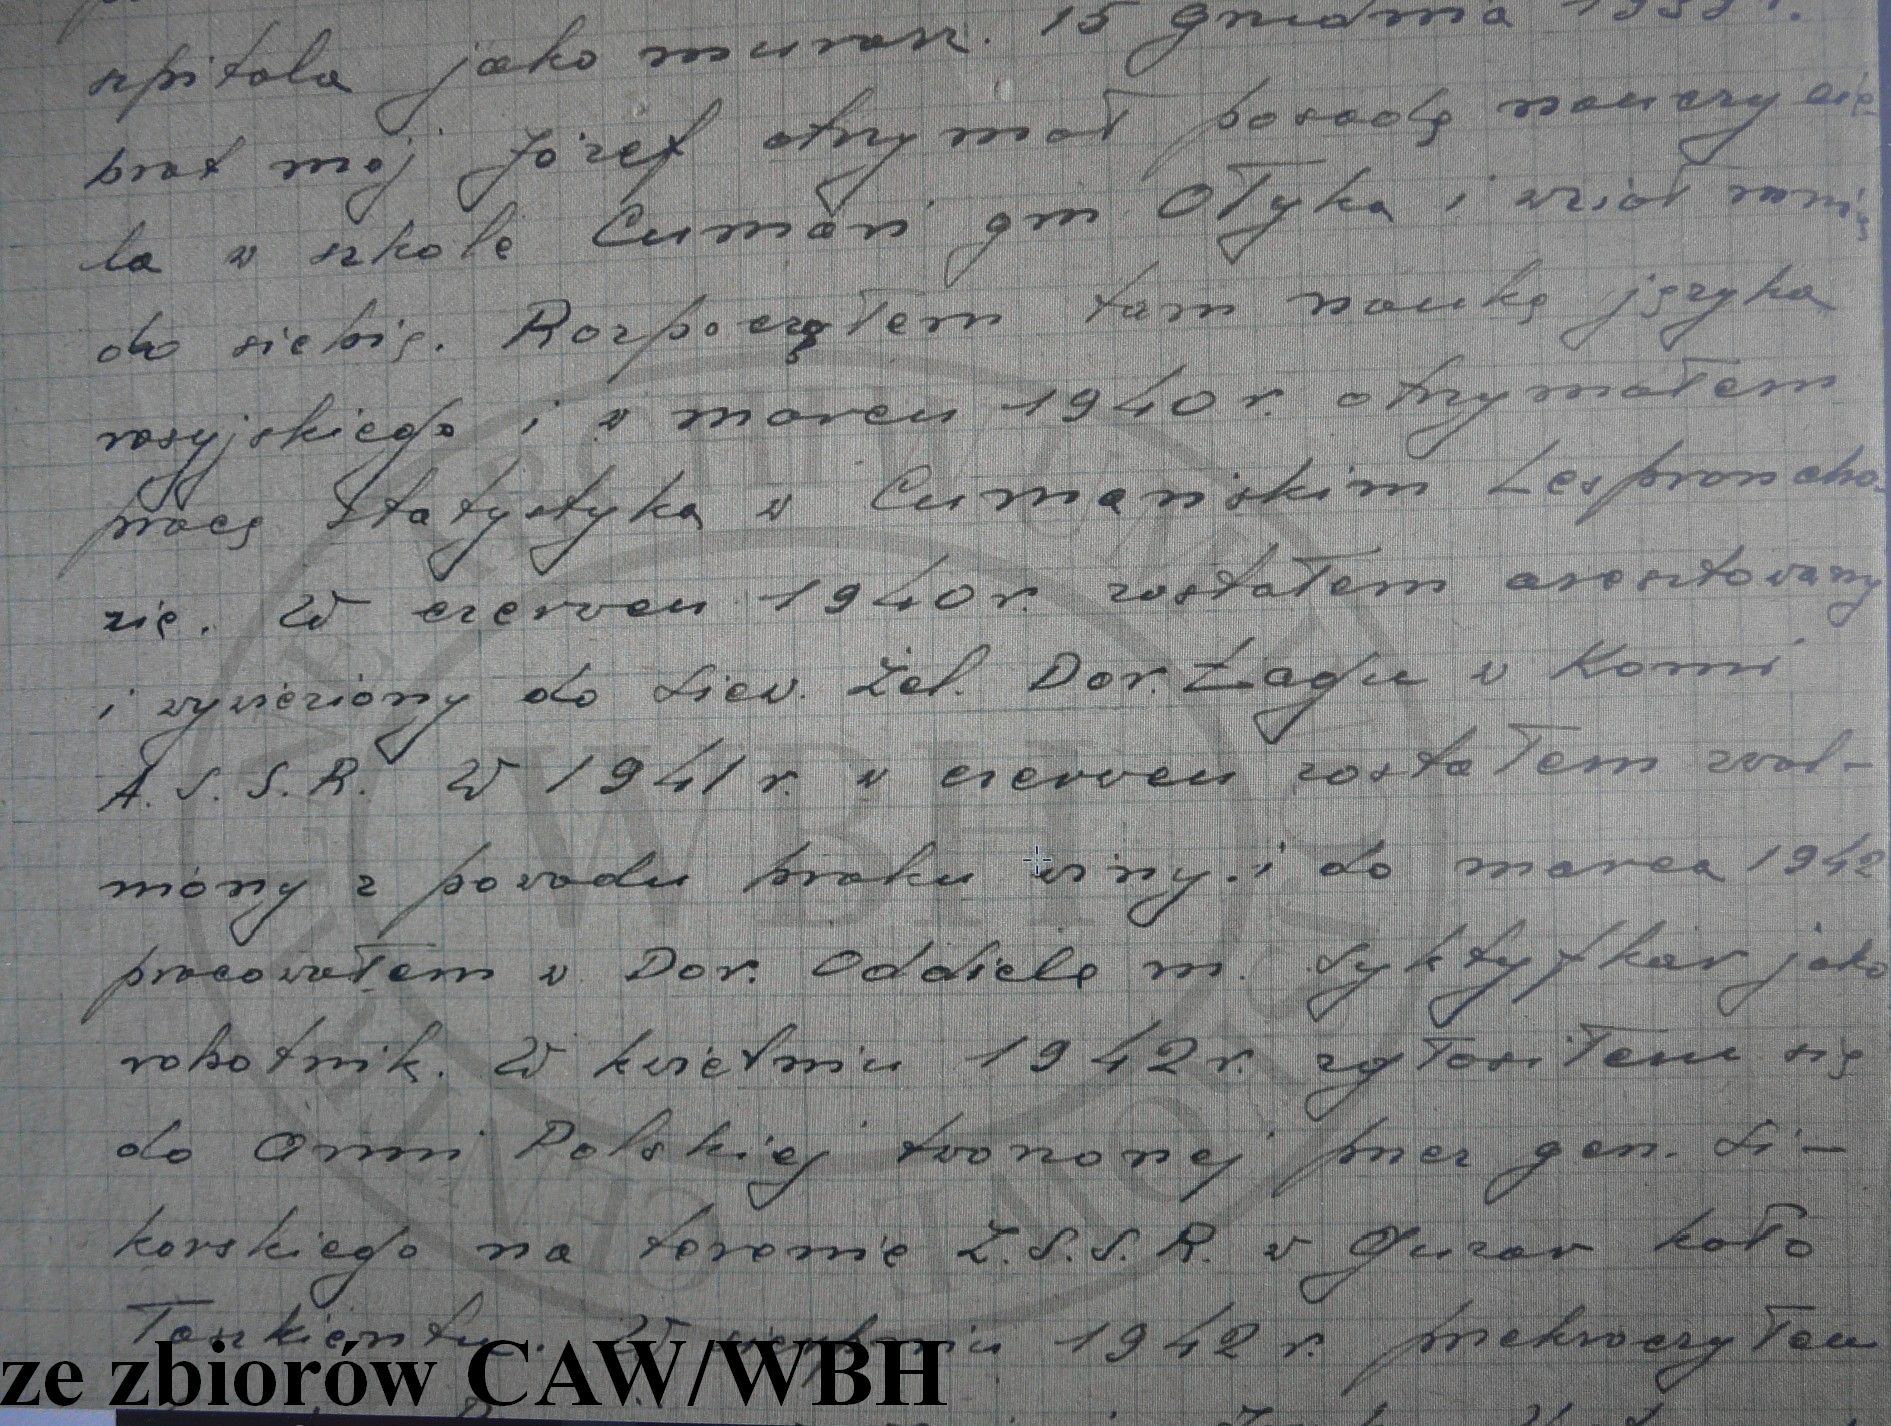 szpitala jako murarz. 15 grudnia 1939 r.
brat mój Józef otrzymał posadę nauczycie
la w szkole Cumań gm Ołyka i wziął mnie
do siebie. Rozpocząłem tam naukę języka
rosyjskiego i w marcu 1940 r. otrzymałem
pracę statystyka w Cumańskim Lespromcho-
zie. W czerwcu 1940 r. zostałem aresztowany
i wywieziony do Siew. Żel. Dor. Łagu w Komi
A.S.S.R. W 1941 r. w czerwcu zostałem zwol-
niony z powodu braku winy. i do marca 1942
pracowałem w Dor. Oddiele m. Syktyfkar jako
robotnik. W kwietniu 1942 r. zgłosiłem się
do Armi Polskiej tworzonej przez gen. Si-
korskiego na terenie Z.S.S.R. w Guzar koło
Taszkientu. W sierpniu 1942 r. przekroczyłem
ze zbiorów CAW/WBH
WBH